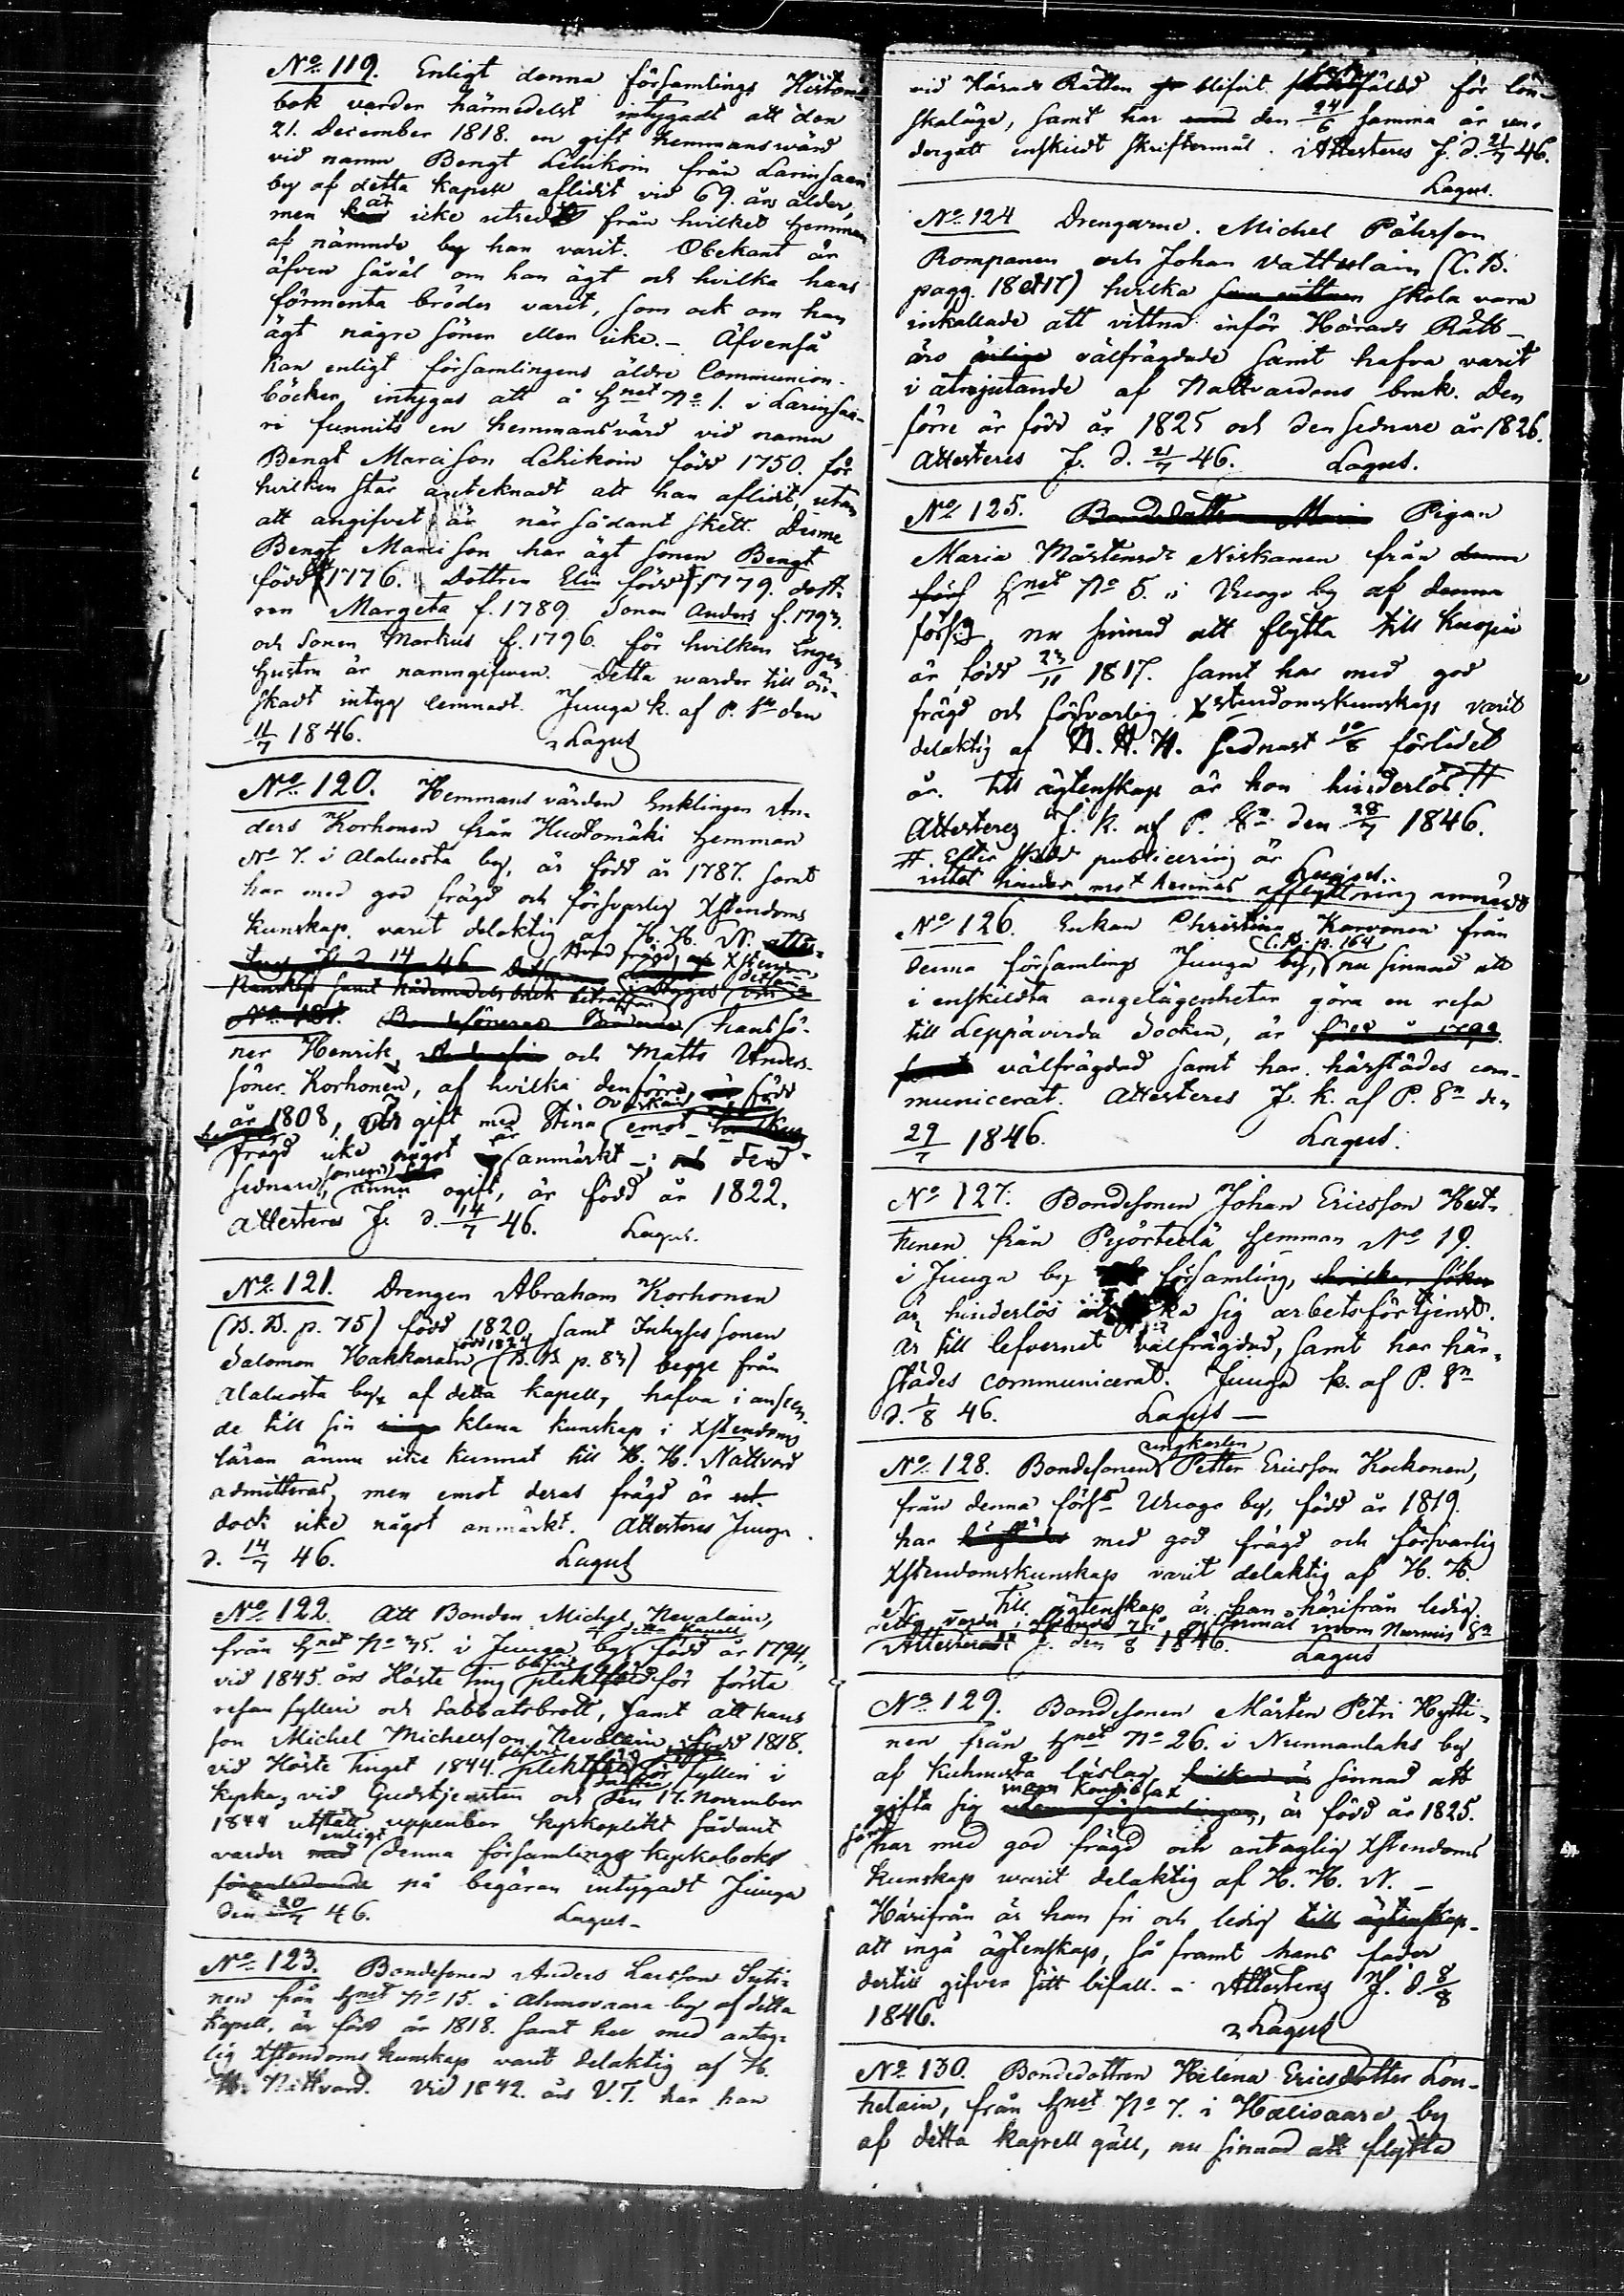 No 119. Enligt denna församlings Historie
bok varder härmedelst intygadt att den
21. December 1818. en gift hemmansvärd
vid namn Bengt Lehikoin från Larinsaari
by af detta kapell aflidit vid 69. års ålder,
men är icke utredt från hvilket hemman
af nämnde by han varit. Obekant är
äfven såväl om han ägt och hvilka hans
förmenta bröder varit, som ock om han
ägt någre söner eller icke. – Äfvenså
kan enligt församlingens äldre Communion-
böcker intygas att å Hnet No 1. i Larinsaa-
ri funnits en hemmansvärd vid namn
Bengt Marcisson Lehikoin född 1750. för
hvilken står anteknadt att han aflidit, utan
att angifvet är när sådant skett. Denne
Bengt Marcisson har ägt sonen Bengt
född 1776. Dottren Elin född 1779. dott-
ren Margeta f. 1789 Sonen Anders f. 1793.
och Sonen Markus f. 1796. för hvilken ingen
hustru är namngifven. Detta warder till ön-
skadt intyg lemnadt. Juuga k. af P. Sn den
11/7 1846. Lagus
No 120. Hemmans värden Enklingen An-
ders Korhonen från Huotomäki hemman
No 7. i Alaluosta by, är född år 1787. samt
har med god frägd och försvarlig Xstendoms
kunskap varit delaktig af H. H. N. atte-
No 121. Bondesönerne hans sö-
ner Henrik, och Matts Anders-
söner Korhonen, af hvilka den förre född
år 1808, är gift med Stina Ovaskain emot
frägd icke något är anmärkt –; den
sednare, ännu ogift, är född år 1822.
Attesteras J. d. 14/7 46. Lagus.
No 121. Drengen Abraham Korhonen
(B. B. p. 75) född 1820 samt Inhyses sonen
Salomon Hakkarain född 1824 (B. B p. 83) begge från
Alaluosta by af detta kapell, hafva i anseen-
de till sin klena kunskap i Xstendoms
läran ännu icke kunnat till H. H. Nattvard
admitteras, men emot deras frägd är
dock icke något anmärkt. Attesteras Juuga
d. 14/7 46. Lagus
No 122. Att Bonden Michel Nevalain,
från Hnet No 35. i Juuga by af detta Kapell född år 1794.,
vid 1845. års Höste ting blifvit pliktfäld för första
resan fylleri och Sabbatsbrott, samt att hans
son Michel Michelsson Nevalain född 1818.
vid Höste Tinget 1844. blifvit pliktfäld för fylleri i
kyrka, vid Gudstjensten och den 17. November
1844 utstått uppenbar kyrkoplikt sådant
varder enligt denna församlings kyrkoboks
föranledande på begäran intygadt Juuga
den 20/7 46. Lagus –
No 123. Bondesonen Anders Larsson Suti-
nen från Hnet No 15. i Ahmovaara by af detta
kapell, är född år 1818. samt har med antag-
lig Xstendoms kunskap varit delaktig af H.
H. Nattvard. Vid 1842. års V. T. har han
vid Härads Rätten blifvit fäld för lön-
skaläge, samt har den 24/6 samma år un-
dergått enskildt skriftermål. Attesteras J. d. 21/7 46.
Lagus.
No 124 Drengarne. Michel Påhrsson
Rompanen och Johan Vattulain (C. B.
pagg. 18 et 17) hvilka som vittnen skola vara
inkallade att vittna inför Härads Rätt –
äro ärlige välfrägdade samt hafva varit
i åtnjutande af Nattvardens bruk. Den
förre är född år 1825 och den sednare år 1826.
Attesteras J. d. 21/7 46. Lagus.
No 125. Pigan
Maria Mårtensdr Niskanen från denna
förs Hnet No 5. i Vuoga by af denna
förs:g, nu sinnad att flytta till Kuopio
är född 23/11 1817. samt har med god
frägd och försvarlig Xstendomskunskap varit
delaktig af H. H. N. sednast 10/8 förlidet
år. Till ägtenskap är hon hinderlös #
Attesteras J. k. af P. Sn den 28/7 1846.
#. Efter publicering är Lagus.
intet hinder mot hennes afflyttning anmäldt
No 126. Enkan Christina Korvonen från
denna församlings Juuga by, C. B. p. 164 nu sinnad att
i enskildta angelägenheter göra en resa
till Leppävirda Socken, är född
samt välfrägdad samt har härstädes com-
municerat. Attesteras J. k. af P. Sn den
29/7 1846. Lagus.
No 127. Bondesonen Johan Ericsson Hut-
tunen från Pyörteelä hemman No 19.
i Juuga by församling, hvilken söker
är hinderlös att söka sig arbetsförtjenst.
är till lefvernet välfrägdad, samt har här-
städes communicerat. Juuga k. af P. Sn
d. 1/8 46. Lagus –
No 128. Bondesonen ungkarlen Petter Ericsson Kockonen,
från denna förs. Vuoga by, född år 1819.
har härstädes med god frägd och försvarlig
Xstendomskunskap varit delaktig af H. H.
N. Till ägtenskap är han härifrån ledig
inom Nurmis Sn
Attesteradt J. den 8 1846. Lagus
No 129. Bondesonen Mårten Petri Hytti-
nen från Hnet No 26. i Nunnanlaks by
af Kuhnusta läslag, hvilken är sinnad att
gifta sig inom utom församlingen, är född år 1825.
har med god frägd och antaglig Xstendoms
kunskap warit delaktig af H. H. N. –
Härifrån är han fri och ledig till ägtenskap
att ingå ägtenskap, så framt hans fader
dertill gifver sitt bifall. – Attesteras J. d. 8/8
1846. Lagus
No 130. Bondedottren Helena Ericsdotter Lou-
helain, från Hnet No 7. i Halivaara by
af detta kapell gäll, nu sinnad att flytta